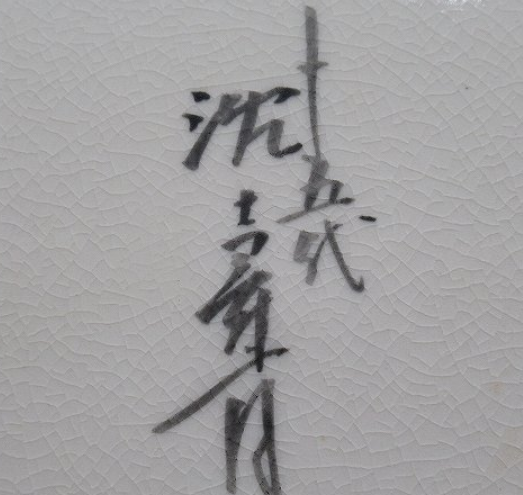 十五代
沈壽官